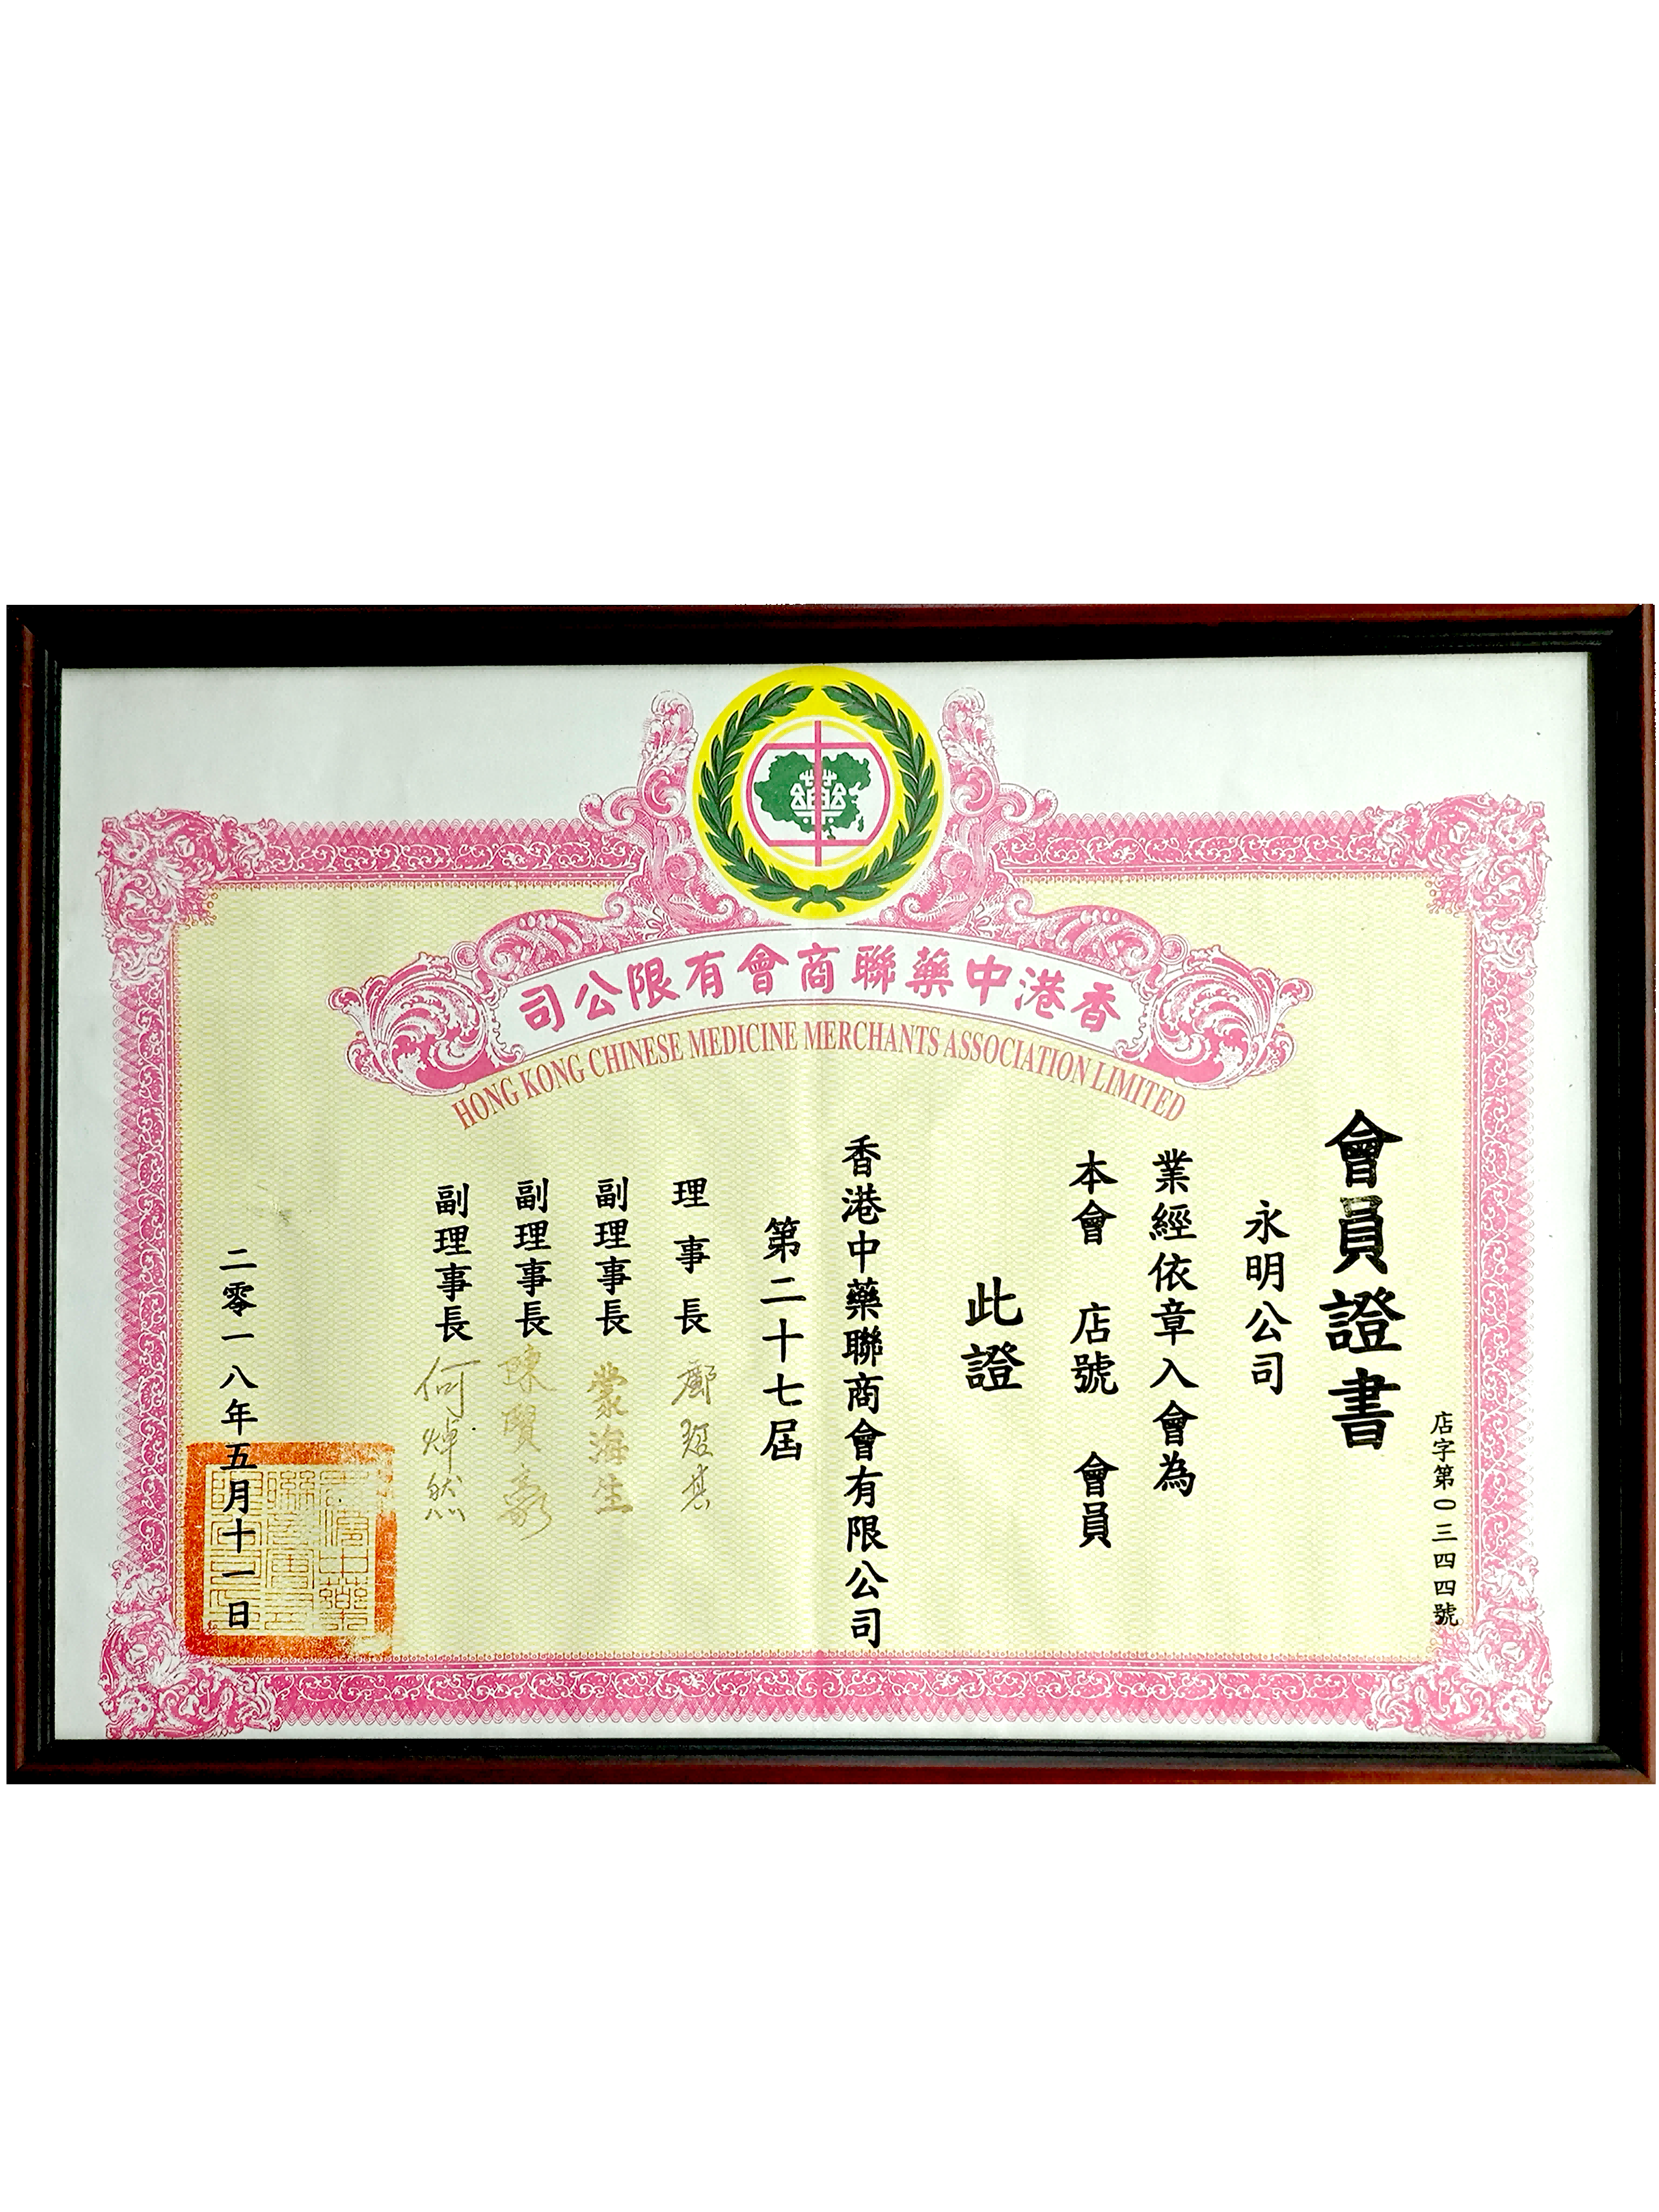 香港中藥聯商會有限公司
HONG KONG CHINESE MEDICINE MERCHANTS ASSOCIATION LIMITED
店字第〇三四四號
會員證書
永明公司
業經依章入會為
本會 店號 會員
此證
香港中藥聯商會有限公司
第二十七屆
理事長
副理事長 蒙海生
副理事長 陳賢豪
副理事長 何焯然
二零一八年五月十一日